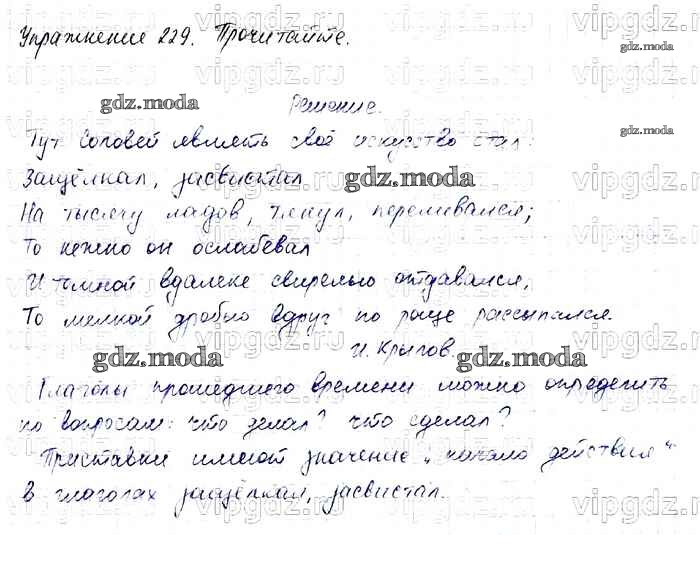 Упражнение 229. Прочитайте.
Решение.
Тут Соловей являть своё искусство стал:
Защёлкал, засвистал
На тысячу ладов, тянул, переливался;
То нежно он ослабевал
И томной вдалеке свирелью отдавался,
То мелкой дробью вдруг по роще рассыпался.
И. Крылов.
Глаголы прошедшего времени можно определить
по вопросам: что делал? что сделал?
Приставки имеют значение „начало действия"
в глаголах защёлкал, засвистал.
gdz.moda
vipgdz.ru